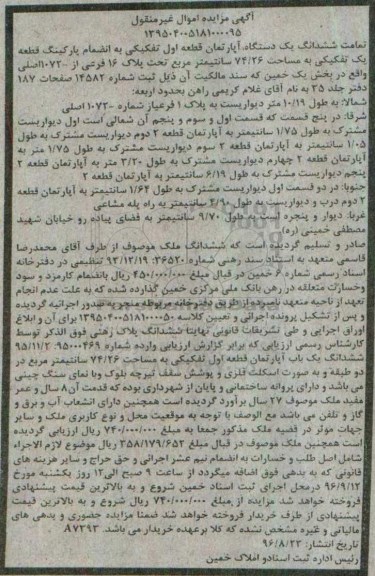 آگهی مزایده اموال غیرمنقول
۱۳۹۵۰۴۰۰۵۱۸۱۰۰۰۰۹۵
تمامت ششدانگ یک دستگاه آپارتمان قطعه اول تفکیکی به انضمام پارکینگ قطعه
یک تفکیکی به مساحت ۷۴/۲۶ سانتیمتر مربع تحت پلاک ۱۶ فرعی از ۱۰۷۳۰۰اصلی
واقع در بخش یک خمین که سند مالکیت آن ذیل ثبت شماره ۱۴۵۸۲ صفحات ۱۸۷
دفتر جلد ۳۵ به نام آقای غلام کریمی راهن بحدود اربعه:
شمالا: به طول ۱۰/۱۹ متر دیواریست به پلاک ۱ فرعیاز شماره ۱۰۷۳۰۰ اصلی
شرقا: در پنج قسمت که قسمت اول و سوم و پنجم آن شمالی است اول دیواریست
مشترک به طول ۱/۷۵ سانتیمتر به آپارتمان قطعه ۲ دوم دیواریست مشترک به طول
۱/۰۵ سانتیمتر به آپارتمان قطعه ۲ سوم دیواریست مشترک به طول ۱/۷۵ متر به
آپارتمان قطعه ۲ چهارم دیواریست مشترک به طول ۳/۲۰ متر به آپارتمان قطعه ۲
پنجم دیواریست مشترک به طول ۶/۱۹ سانتیمتر به آپارتمان قطعه ۲
جنوبا: در دو قسمت اول دیواریست مشترک به طول ۱/۶۴ سانتیمتر به آپارتمان قطعه
۲ دوم درب و دیواریست به طول ۴/۹۰ سانتیمتر به راه پله مشاعی
غربا: دیوار و پنجره است به طول ۹/۷۰ سانتیمتر به فضای پیاده رو خیابان شهید
مصطفی خمینی (ره)
صادر و تسلیم گردیده است که ششدانگ ملک موصوف از طرف آقای محمدرضا
قاسمی متعهد به استناد سند رهنی شماره ۳۶۵۲۰-۹۳/۱۲/۱۹ تنظیمی در دفترخانه
اسناد رسمی شماره ۶ خمین در قبال مبلغ ۴۵۰/۰۰۰/۰۰۰ ریال بانضمام کارمزد و سود
وخسارات متعلقه در رهن بانک ملی مرکزی خمین گذارده شده که به علت عدم انجام
تعهد از ناحیه متعهد نامبرده از طریق دفترخانه مربوطه منجر به صدور اجرائیه گردیده
و پس از تشکیل پرونده اجرائی و تعیین کلاسه ۱۳۹۵۰۴۰۰۵۱۸۱۰۰۰۰۵۰ برای آن و ابلاغ
اوراق اجرایی و طی تشریفات قانونی نهایتا ششدانگ پلاک رهنی فوق الذکر توسط
کارشناس رسمی ارزیابی که برابر گزارش ارزیابی وارده شماره ۹۵۰۰۰۴۶۹-۹۵/۱۱/۲
ششدانگ یک باب آپارتمان قطعه اول تفکیکی به مساحت ۷۴/۲۶ سانتیمتر مربع در
دو طبقه و به صورت اسکلت فلزی و پوشش سقف تیرچه بلوک وبا نمای سنگ چینی
می باشد و دارای پروانه ساختمانی و پایان از شهرداری بوده که قدمت آن۸ سال و عمر
مفید ملک موصوف ۲۷ سال برآورد گردیده است همچنین دارای انشعاب آب و برق و
گاز و تلفن می باشد مع الوصف با توجه به موقعیت محل و نوع کاربری ملک و سایر
جهات موثر در قضیه ملک مذکور جمعا به مبلغ ۷۴۰/۰۰۰/۰۰۰ ریال ارزیابی گردیده
است همچنین ملک موصوف در قبال مبلغ ۳۵۸/۱۷۹/۶۵۲ ریال موضوع لازم الاجراء
شامل اصل طلب و خسارات به انضمام نیم عشر اجرائی و حق حراج و سایر هزینه های
قانونی که به بدهی فوق اضافه میگردد از ساعت ۹ صبح الی۱۲ روز یکشنبه مورخ
۹۶/۹/۱۲ درمحل اجرای ثبت اسناد خمین شروع و به بالاترین قیمت پیشنهادی
فروخته خواهد شد مزایده از مبلغ ۷۴۰/۰۰۰/۰۰۰ ریال شروع و به بالاترین قیمت
پیشنهادی از طرف خریدار فروخته خواهد شد ضمنا مزایده حضوری و بدهی های
مالیاتی و غیره مشخص نشده که کلا برعهده خریدار می باشد. ۸۷۲۹۳
تاریخ انتشار: ۹۶/۸/۲۳
رئیس اداره ثبت اسنادو املاک خمین